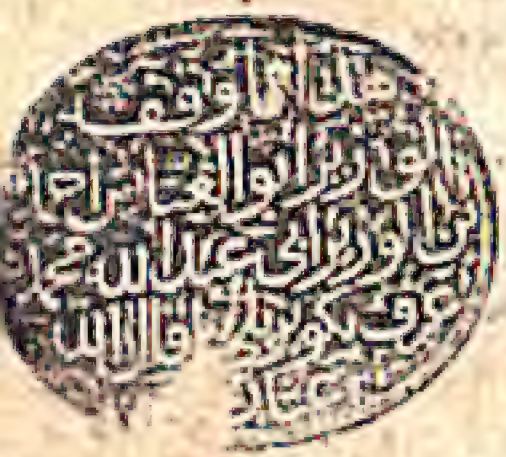 هذا ما وقف
الوزير ابو العباس احمد
ابن الوزير ابي عبد الله محمد
عرف بكوبريلي اقال الله